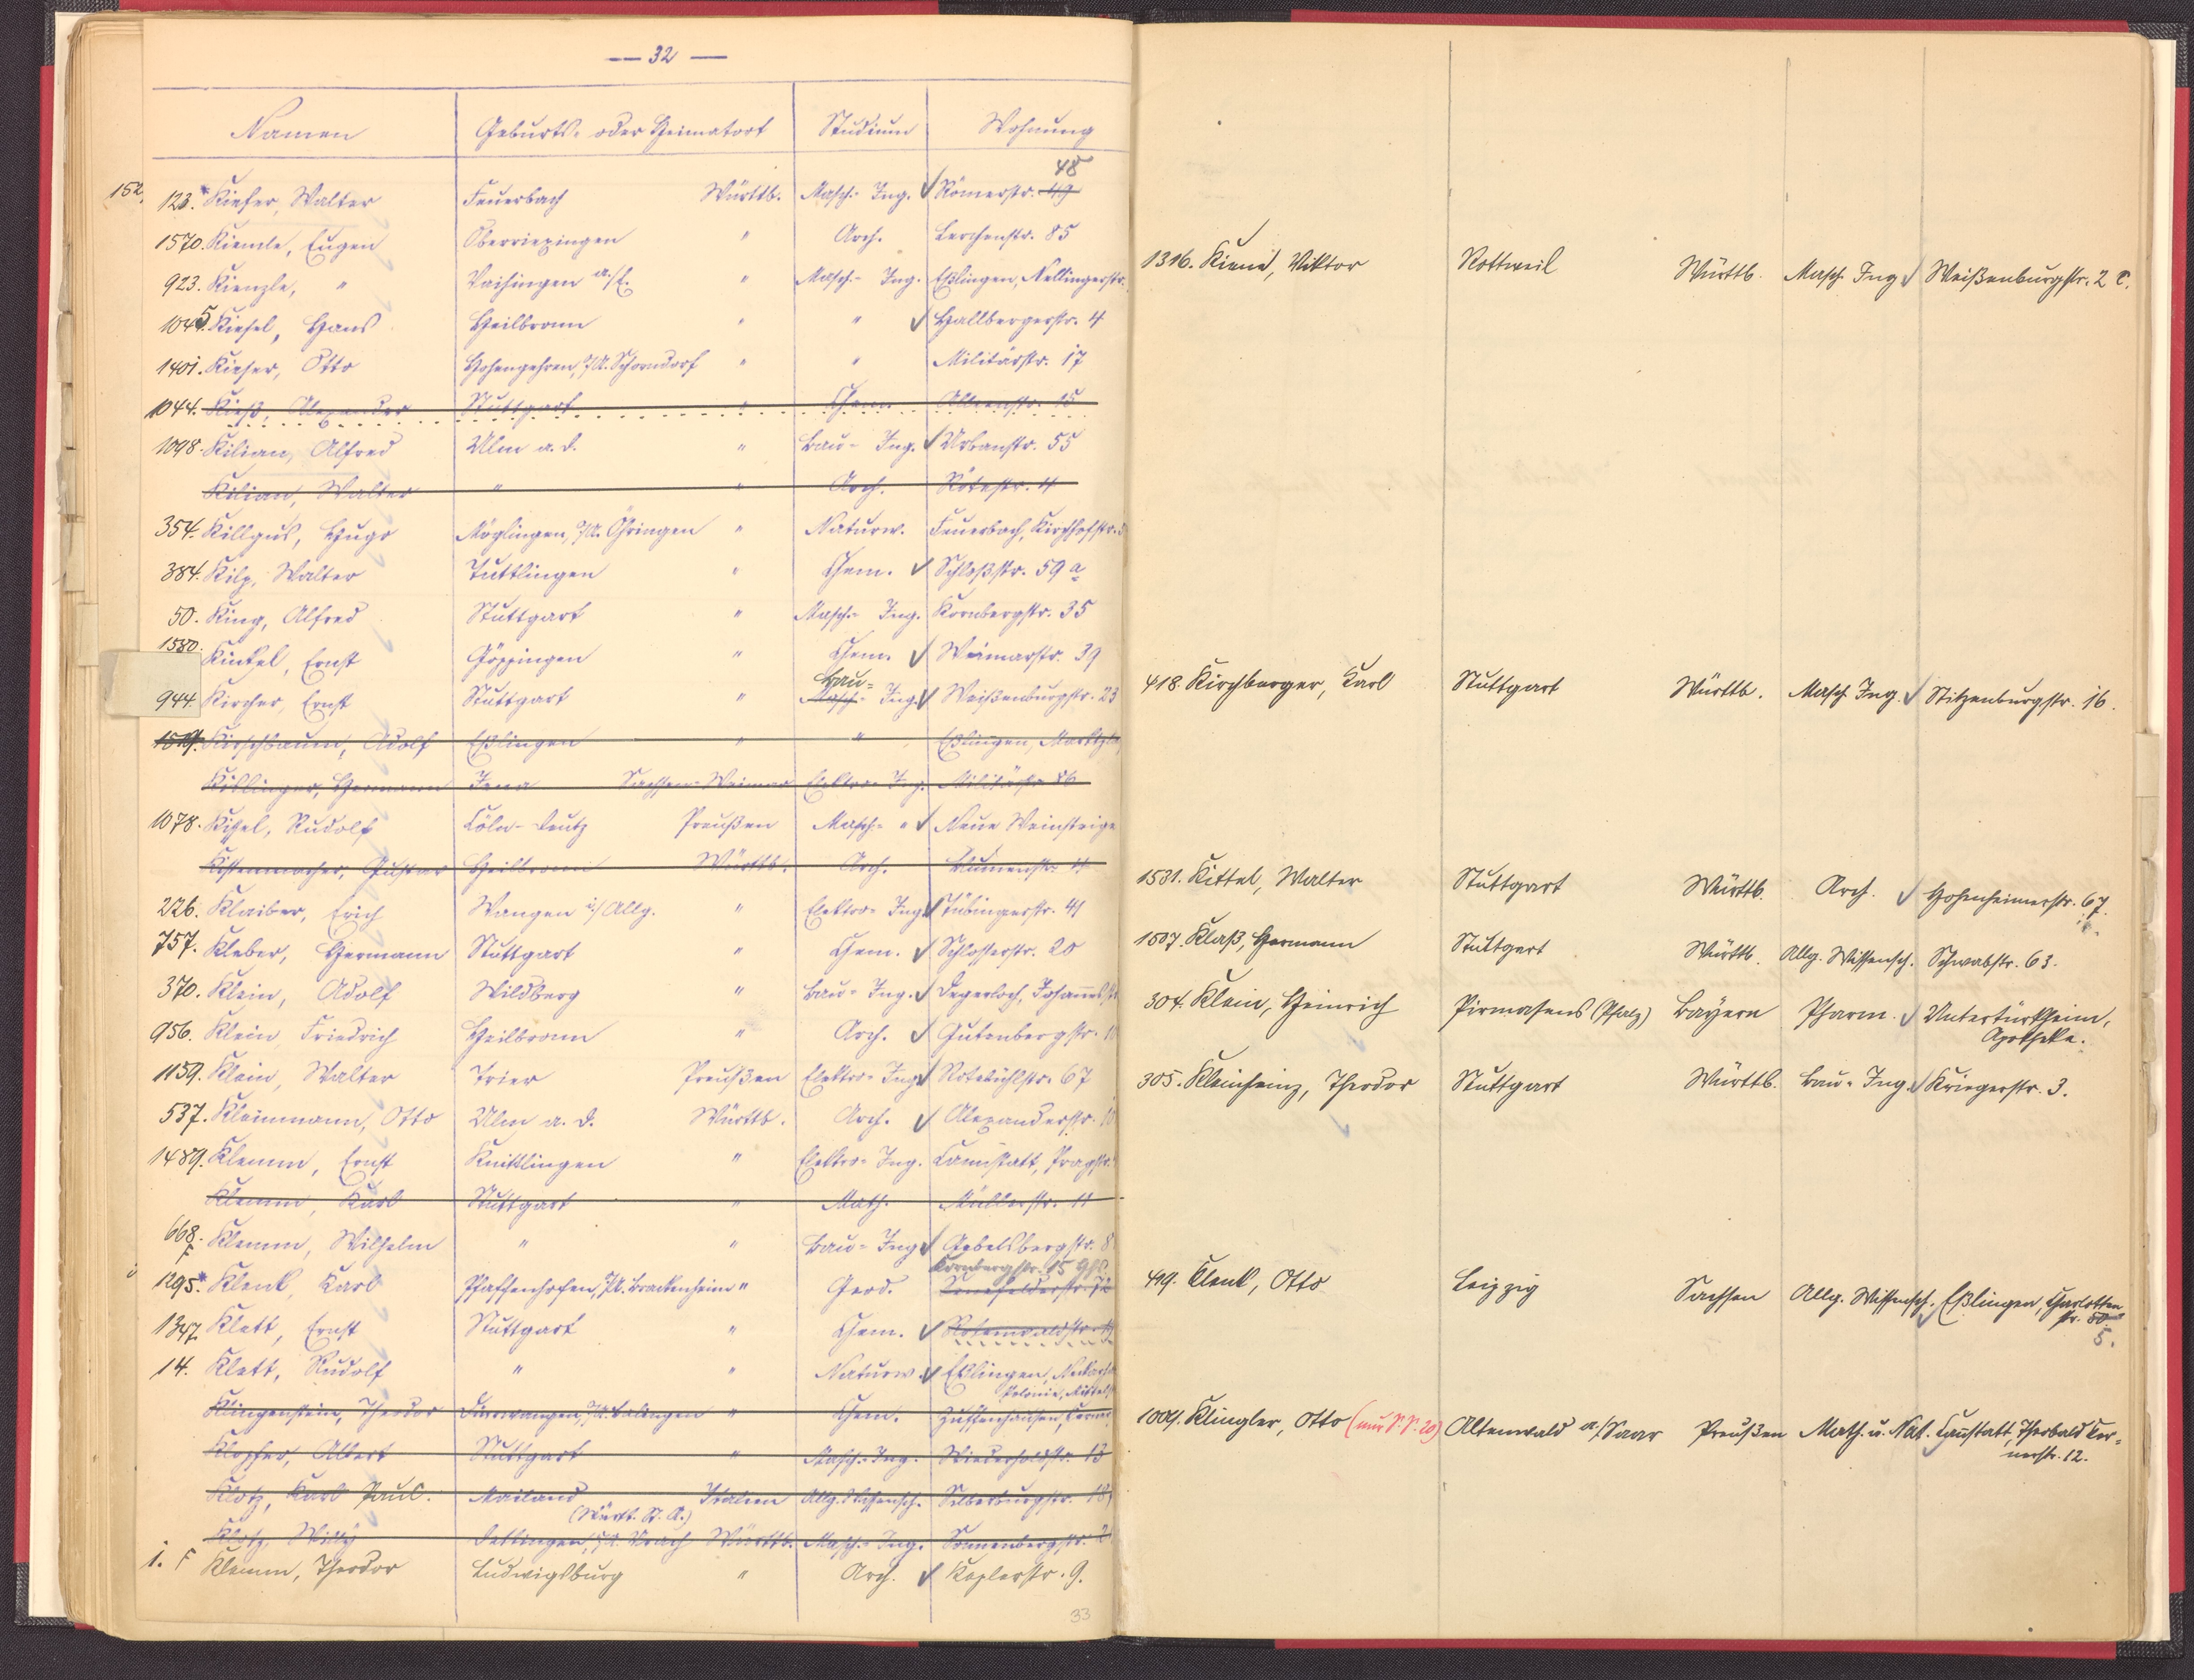 — 32 —
Namen Geburts- oder Heimatort Studium Wohnung
48
152. 123.* Kiefer, Walter Feuerbach Württb. Masch.- Ing. ✓ Römerstr. 49
1570. Kiemle, Eugen Oberriexingen " Arch. Lerchenstr. 85
923. Kienzle, " Vaihingen a./E. " Masch.- Ing. Eßlingen, Nellingerstr.
1045. Kiesel, Hans Heilbronn " " ✓ Hallbergerstr. 4
1401. Kieser, Otto Hohengehren, O/A. Schorndorf " " Militärstr. 17
1044. Kieß, Alexander Stuttgart " Chem. 15
1098. Kilian, Alfred Ulm a. D. " Bau- Ing. ✓ Urbanstr. 55
Kilian, Walter " " Arch. Rötestr. 4
354. Killgus, Hugo Möglingen, O/A. Öhringen " Naturw. Feuerbach, Kirchhofstr.
384. Kilp, Walter Tuttlingen " Chem. ✓ Schloßstr. 59 a
50. King, Alfred Stuttgart " Masch.- Ing. Kornbergstr. 35
1580. Kinkel, Ernst Göppingen " Chem. ✓ Weimarstr. 39
Bau-
944. Kircher, Ernst Stuttgart " Masch.- Ing. ✓ Weißenburgstr. 23
1519. Kirschbaum, Adolf Eßlingen " " Eßlingen, Marktpla
Kißlinger, Hermann Jena Sachsen-Weimar Elektro- Ing. Militärstr. 86
1078. Kissel, Rudolf Cöln-Deutz Preußen Masch.- " ✓ Neue Weinsteige
Kistenmacher, Gustav Heilbronn Württb. Arch. Blumenstr. 4
226. Klaiber, Erich Wangen i./Allg. " Elektro- Ing. ✓ Tübingerstr. 41
757. Kleber, Hermann Stuttgart " Chem. ✓ Schlosserstr. 20
370. Klein, Adolf Wildberg " Bau- Ing. ✓ Degerloch,
956. Klein, Friedrich Heilbronn " Arch. ✓ Gutenbergstr.
1159. Klein, Walter Trier Preußen Elektro- Ing. ✓ Rotebühlstr. 67
537. Kleinmann, Otto Ulm a. D. Württb. Arch. ✓ Alexanderstr.
1489. Klemm, Ernst Knittlingen " Elektro- Ing. Cannstatt, Pragstr.
Klemm, Karl Stuttgart " Math. Müllerstr. 11
668. Klemm, Wilhelm " " Bau- Ing. ✓ Gebelsbergstr. 8
Kornbergstr. 15
1295.* Klenk, Karl Pfaffenhofen, O/A. Brackenheim " Geod. Senefelderstr. 72
1347. Klett, Ernst Stuttgart " Chem. ✓ Rosenwaldstr.
14. Klett, Rudolf " " Naturw. ✓ Eßlingen,
Klingenstein, Theodor Dürrwangen, O/A. Balingen " Chem. Zuffenhausen,
Klopfer, Albert Stuttgart " Masch.- Ing. Wiederholdstr. 13
Klotz, Karl Paul. Mailand Italien Allg. Wissensch. Silberburgstr.
(Württ. St. A.)
Klotz, Willy Dettingen, O/A. Urach Württb. Masch.- Ing. Sonnenbergstr.
1. F Klemm, Theodor Ludwigsburg " Arch. ✓ Keplerstr. 9.
33
1316. Kiene, Viktor Rottweil Württb. Masch. Ing. ✓ Weißenburgstr. 2 c.
418. Kirchberger, Karl Stuttgart Württb. Masch. Ing. ✓ Stitzenburgstr. 16.
1531. Kittel, Walter Stuttgart Württb. Arch. ✓ Hohenheimerstr. 67.
1507. Klaß, Hermann Stuttgart Württb. Allg. Wissensch. Schwabstr. 63.
304. Klein, Heinrich Pirmasens (Pfalz) Bayern Pharm. ✓ Untertürkheim,
Apotheke.
305. Kleinheinz, Theodor Stuttgart Württb. Bau- Ing. ✓ Kriegerstr. 3.
419. Klenk, Otto Leipzig Sachsen Allg. Wissensch. ✓ Eßlingen, Charlotten-
str. 50
5.
1004. Klingler, Otto Altenwald a/Saar Preußen Math. u. Nat. ✓ Cannstatt, Theobald Ker-
nerstr. 12.